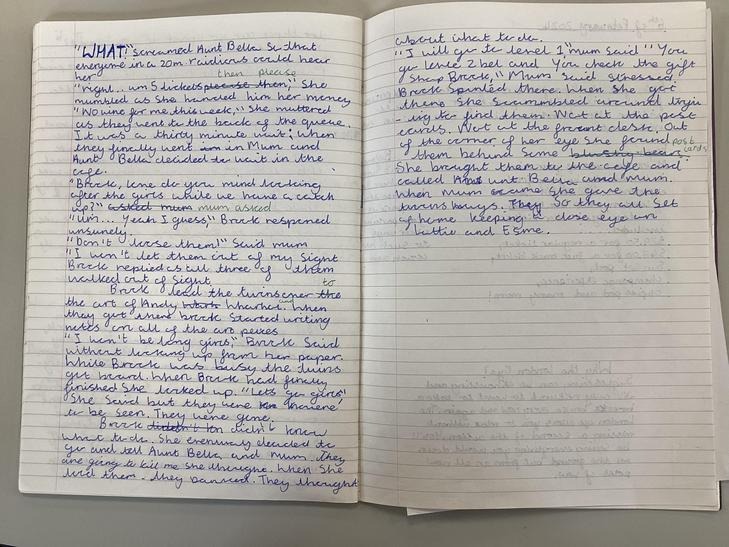 "WHAT!" screamed Aunt Bella so that
everyone in a 20m raidious could hear
her
then please
"right.. um 5 tickets please then," she
mumbled as she handed him her money
"No wine for me this week," she muttered
as they went to the back of the queue.
It was a thirty minute wait; when
they finally went in in Mum and
Aunt Bella decided to wait in the
cafe.
"Brook, love do you mind looking
after the girls while we have a catch
up?" asked mum mum asked
"um... Yeah I guess," Brook responed
unsurely.
"Don't loose them!" Said mum
"I won't let them out of my sight
Brook replied as all three of them
walked out of sight.
Brook lead the twins over the to
the art of Andy Wharhol. When
they got there brook started writing
notes on all of the art peices
"I won't be long girls," Brook Said
without looking up from her paper.
While Brook was busy the twins
got board. When Brook had finally
finished She looked up. "Lets go girls"
She Said but they were nowere
to be seen. They were gone.
Brook didn't know
what to do. She eventualy decided to
go and tell Aunt Bella and mum. they
are going to kill me she thought. When She
told them. they They thought
about what to do.
"I will go to level 1" mum Said "You
go level 2 bel and You check the gift
Shop Brook," Mum Said stressed.
Brook Sprinted there. When She got
there She Scrambled around tryi-
-ng to find them. Not at the post
cards. Not at the front desk. Out
of the corner of her eye She found
them behind Some post cards
She brought them to the cafe and
called Aunt Bella and mum.
When Mum came She gave the
twins hugs. They So they all. Set
of home keeping a close eye on
Lottie and Esme.